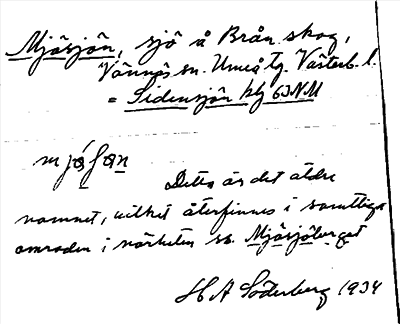 Mjösjön, sjö å Brån. skog,
Vännäs sn. Umeå tg. Västerb. l.
= Sidensjön kbl 63 N.M
mjøʃøn
Detta är det äldre
namnet, vilket återfinnes i samtliga
områden i närheten ss. Mjösjöberget
H A Söderberg 1934